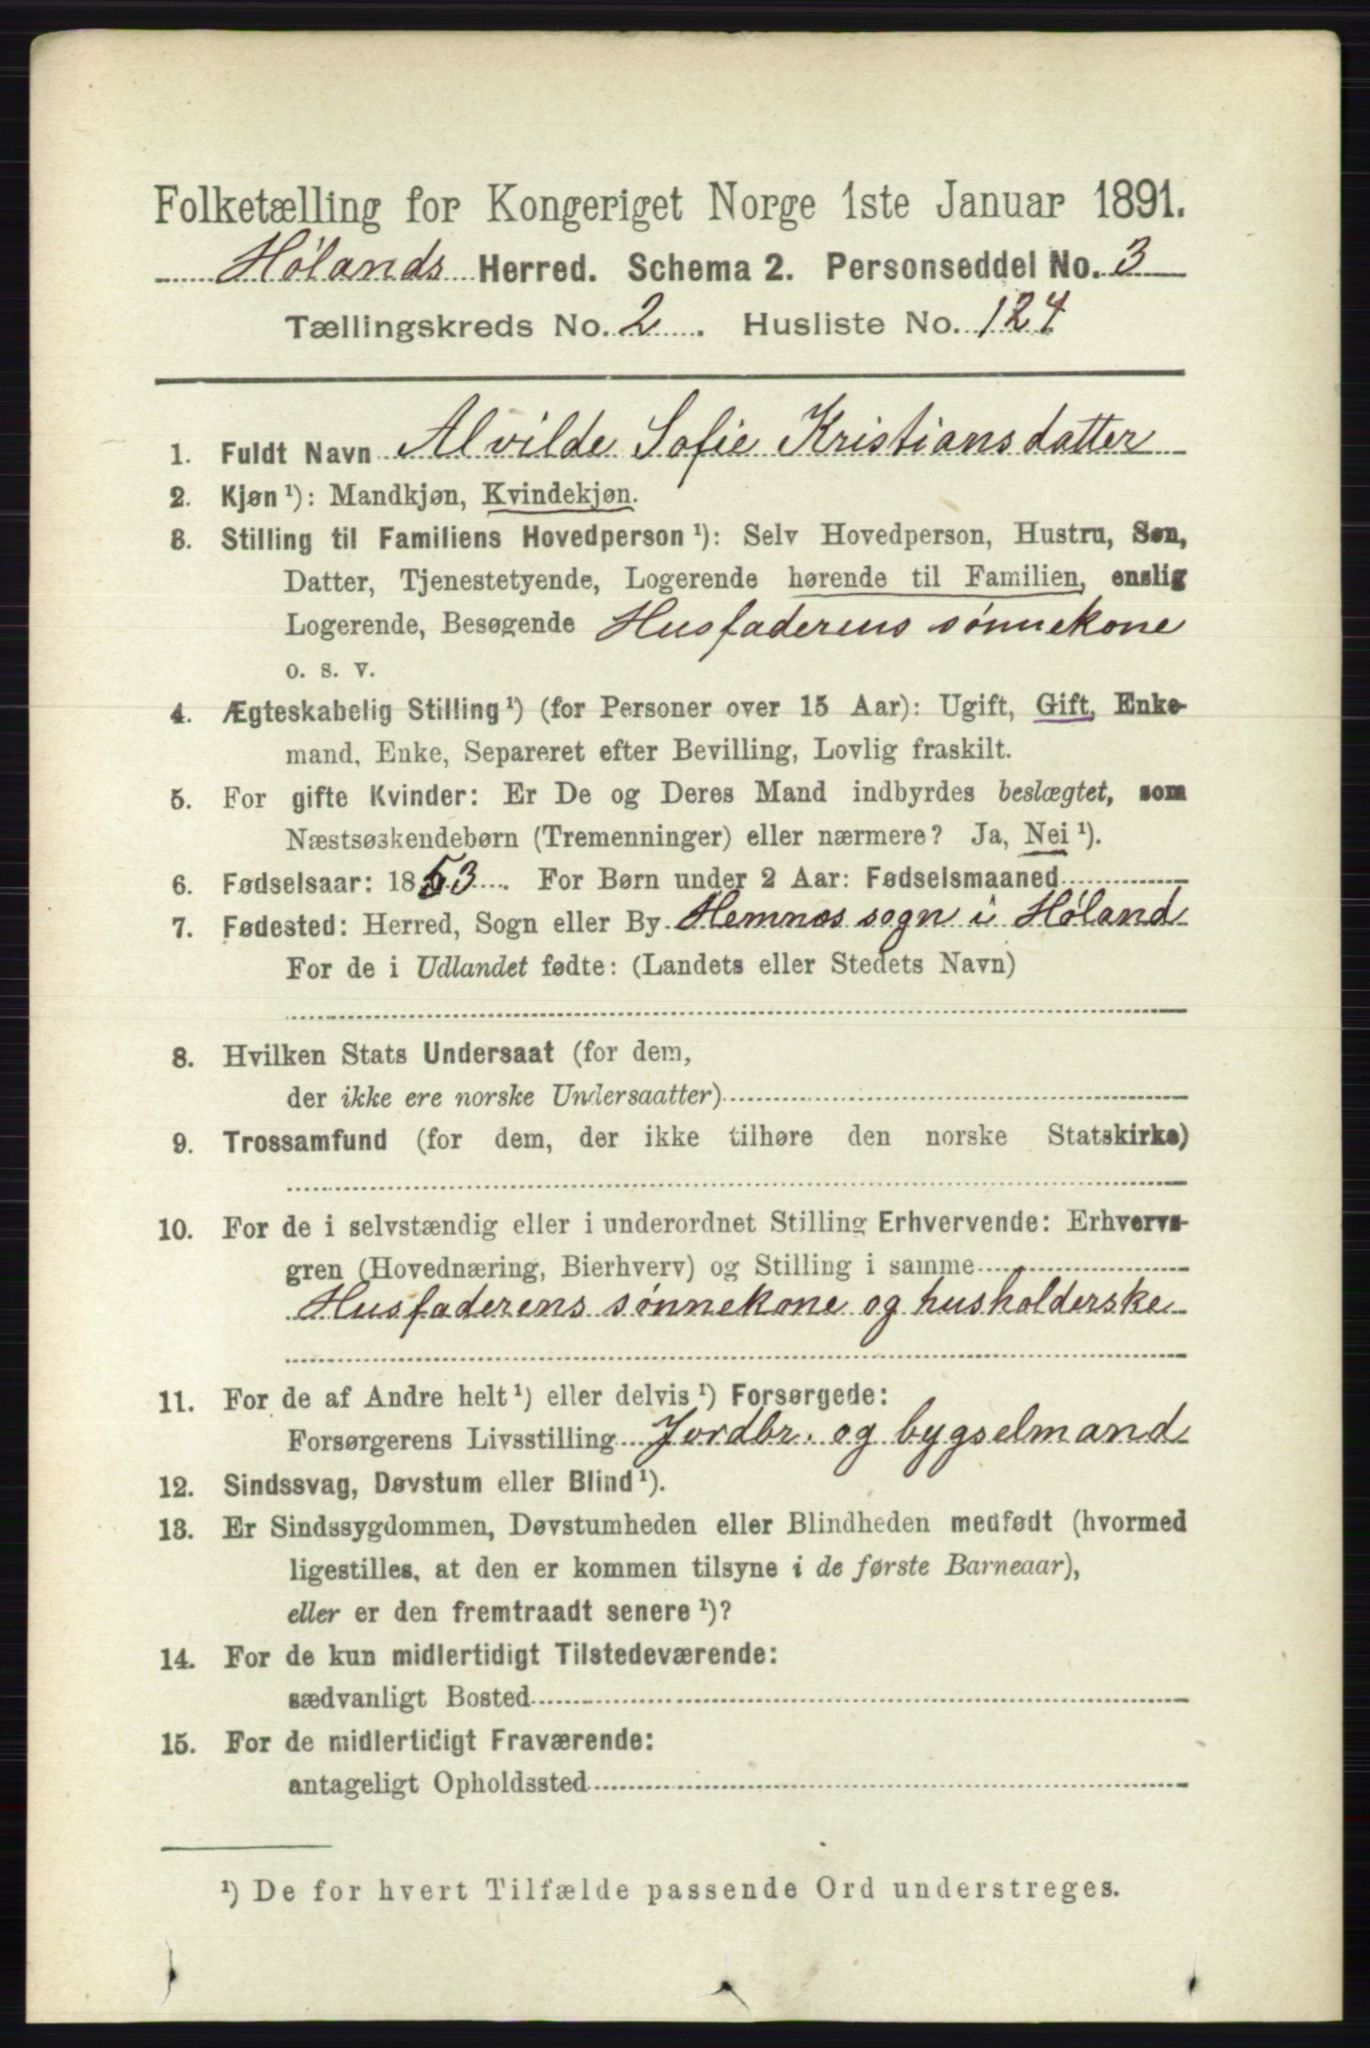 Folketælling for Kongeriget Norge 1ste Januar 1891.
Hølands Herred. Schema 2. Personseddel No. 3
Tællingskreds No. 2. Husliste No. 124
1. Fuldt Navn Alvilde Sofie Kristiansdatter
2. Kjøn¹): Mandkjøn, Kvindekjøn.
3. Stilling til Familiens Hovedperson¹): Selv Hovedperson, Hustru, Søn,
Datter, Tjenestetyende, Logerende hørende til Familien, enslig
Logerende, Besøgende Husfaderens sønnekone
o. s. v.
4. Ægteskabelig Stilling¹) (for Personer over 15 Aar): Ugift, Gift, Enke-
mand, Enke, Separeret efter Bevilling, Lovlig fraskilt.
5. For gifte Kvinder: Er De og Deres Mand indbyrdes beslægtet, som
Næstsøskendebørn (Tremenninger) eller nærmere? Ja, Nei¹).
6. Fødselsaar: 1853. For Børn under 2 Aar: Fødselsmaaned
7. Fødested: Herred, Sogn eller By Hemnes sogn i Høland
For de i Udlandet fødte: (Landets eller Stedets Navn)
8. Hvilken Stats Undersaat (for dem,
der ikke ere norske Undersaatter)
9. Trossamfund (for dem, der ikke tilhøre den norske Statskirke)
10. For de i selvstændig eller i underordnet Stilling Erhvervende: Erhvervs-
gren (Hovednæring, Bierhverv) og Stilling i samme
Husfaderens sønnekone og husholderske
11. For de af Andre helt¹) eller delvis¹) Forsørgede:
Forsørgerens Livsstilling Jordbr. og bygselmand
12. Sindssvag, Døvstum eller Blind¹).
13. Er Sindssygdommen, Døvstumheden eller Blindheden medfødt (hvormed
ligestilles, at den er kommen tilsyne i de første Barneaar),
eller er den fremtraadt senere¹)?
14. For de kun midlertidigt Tilstedeværende:
sædvanligt Bosted
15. For de midlertidigt Fraværende:
antageligt Opholdssted
¹) De for hvert Tilfælde passende Ord understreges.